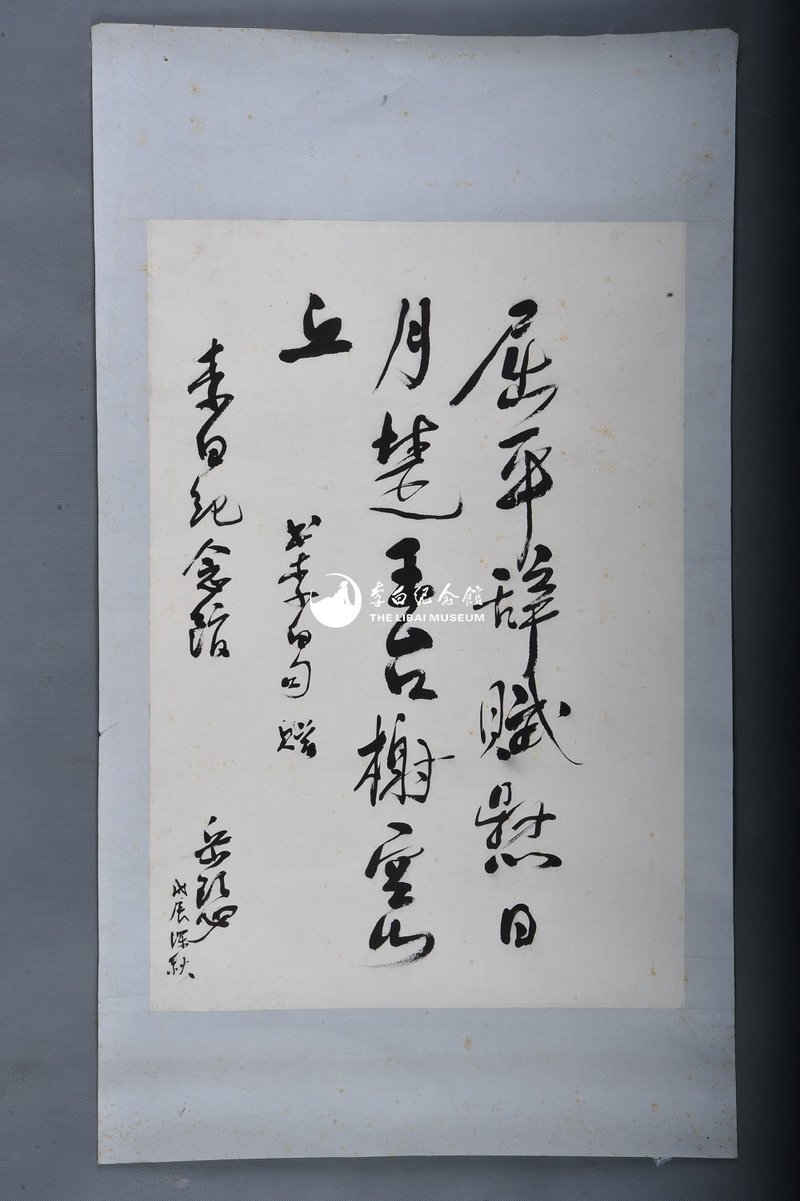 屈平辞赋悬日
月楚王台榭空山
丘
书李白句赠
李白纪念馆
戊辰深秋
李白纪念館
THE LIBAI MUSEUM